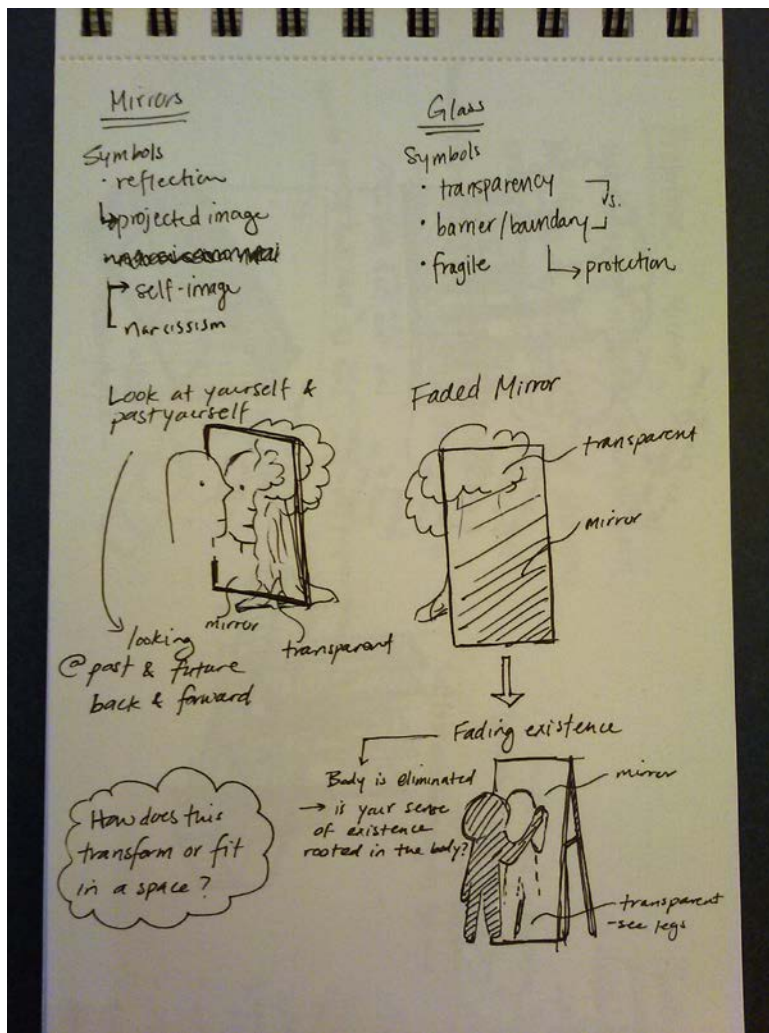 Mirrors
Symbols
· reflection
↳projected image
→ self-image
narcissism
Glass
Symbols
· transparency
vs.
· barrier/boundary
· fragile
↳ protection
Look at yourself &
past yourself
mirror
transparent
looking
@ past & future
back & forward
Faded Mirror
transparent
mirror
Fading existence
Body is eliminated
→ is your sense
of existence
rooted in the body?
mirror
transparent
-see legs
How does this
transform or fit
in a space?